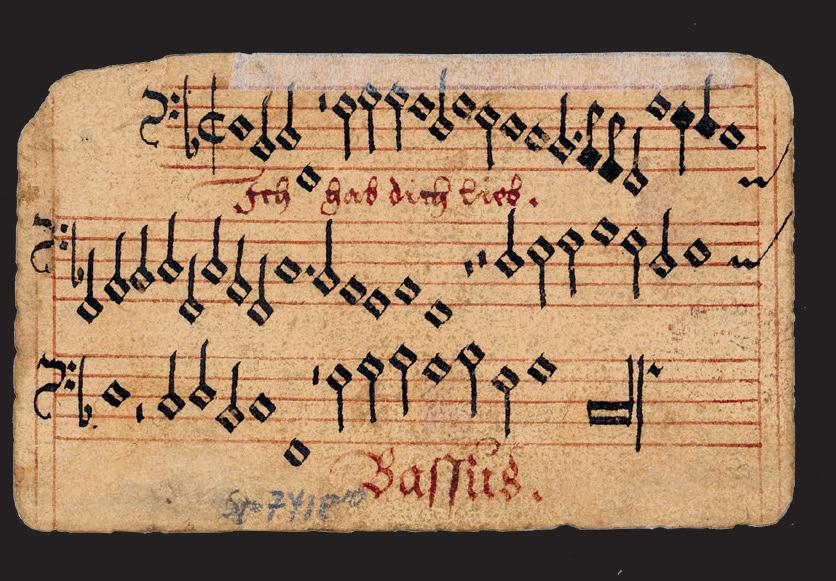 Ich hab dich lieb.
Bassus.